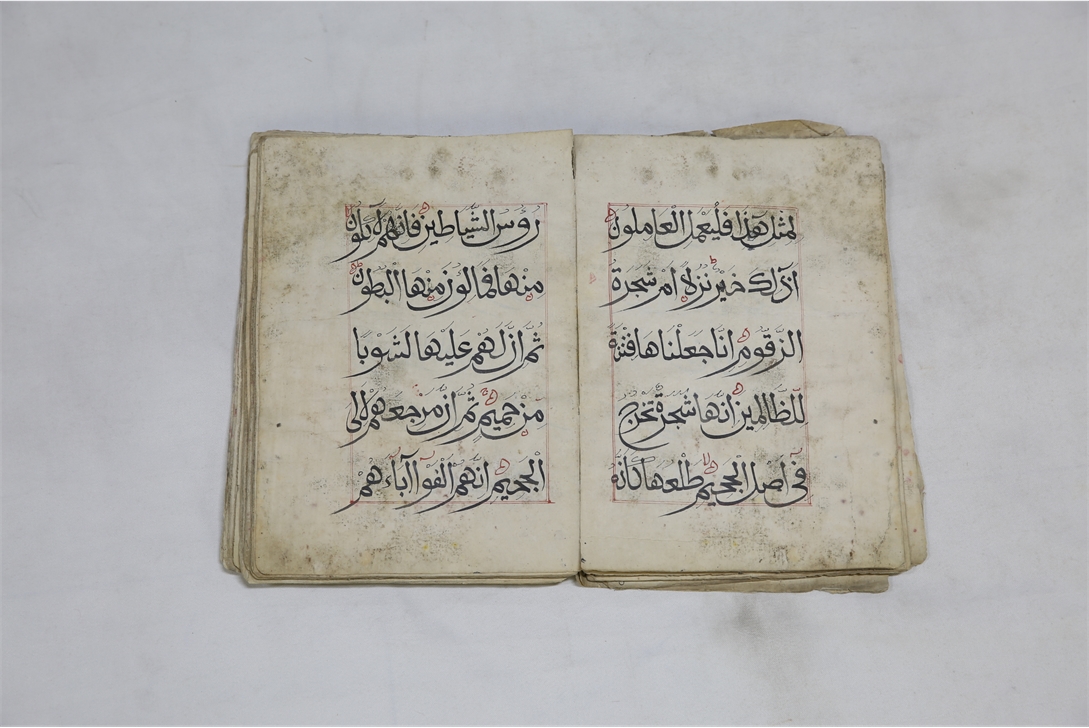 لمثل هذا فليعمل العاملون
اذلك خير نزلا ام شجرة
الزقوم انا جعلناها فتنة
للظالمين انها شجرة تخرج
في اصل الجحيم طلعها كانه
رؤس الشياطين فانهم لآكلون
منها فمالؤن منها البطون
ثم ان لهم عليها لشوبا
من حميم ثم ان مرجعهم لالى
الجحيم انهم الفوا آباءهم